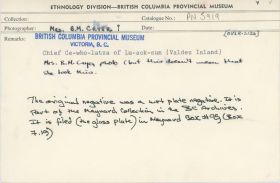 ETHNOLOGY DIVISION—BRITISH COLUMBIA PROVINCIAL MUSEUM
Collection: Catalogue No.: PN 5919
Photographer: Mrs. B.M. Cryer ?
Remarks: BRITISH COLUMBIA PROVINCIAL MUSEUM (OVERSIZE)
VICTORIA, B. C.
Chief Ce-who-latza of Lu-sok-sun (Valdez Island)
Mrs. B.M. Cryer photo (but this doesn't mean that
she took this.
The original negative was a wet plate negative. It is
part of the Maynard Collection in the BC Archives.
It is filed (the glass plate) in Maynard Box #95 (Box